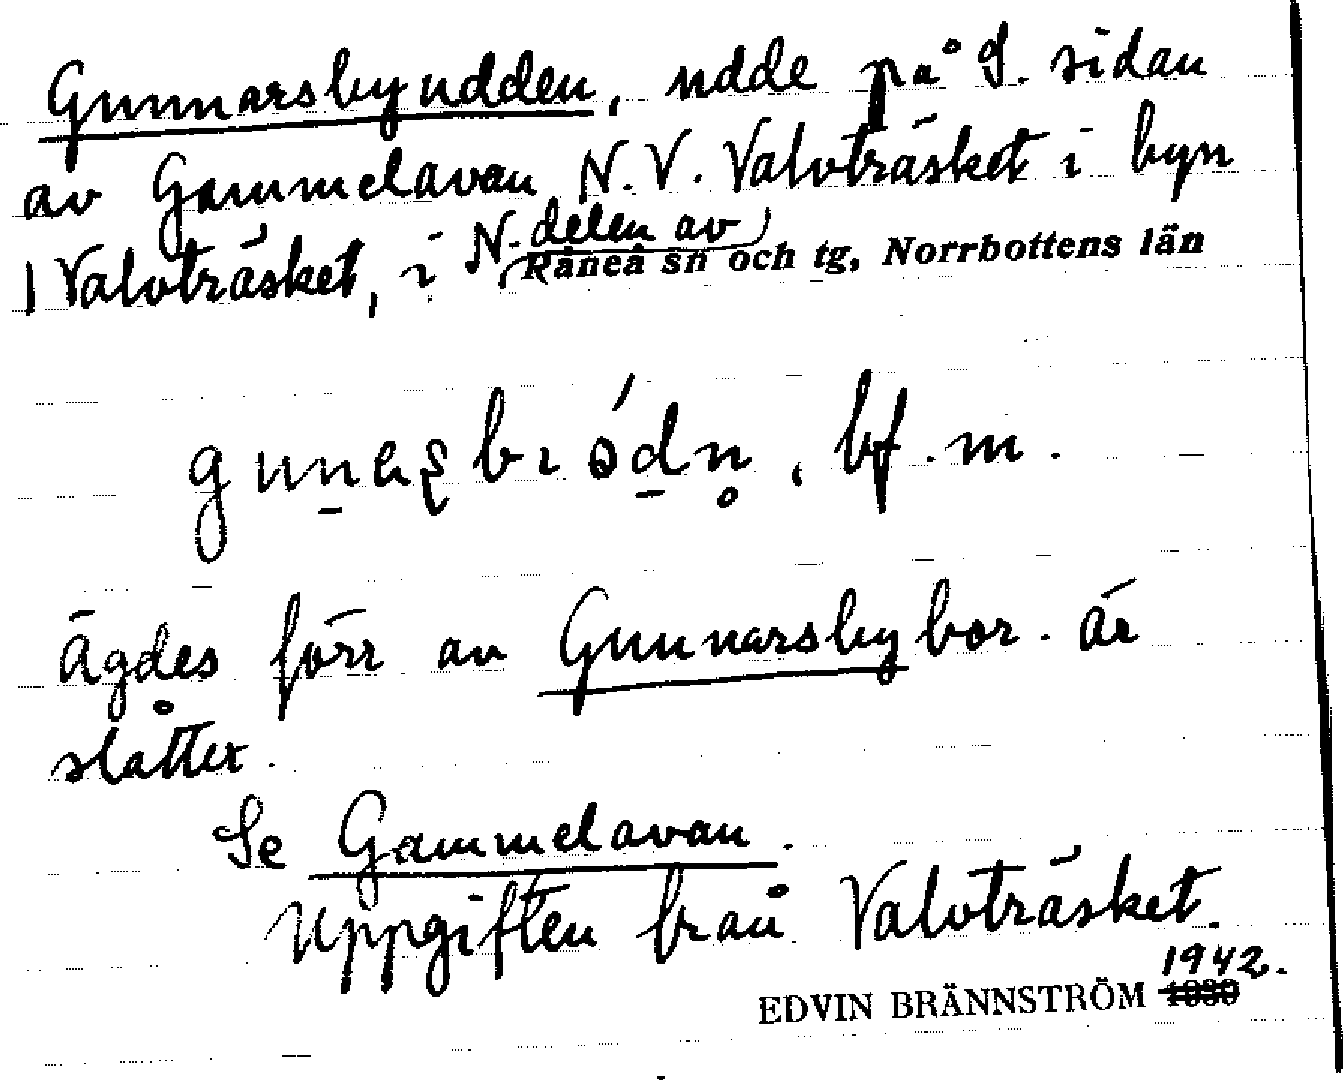 Gunnarsbyudden, udde på S. sidan
av Gammelavan N.V. Valvträsket i byn
1 Valvträsket, i N. delen av
Råneå sn och tg, Norrbottens län
bf. m.
ägdes förr av Gunnarsbybor. är
slåtter.
Se Gammelavan.
Uppgiften från Valvträsket.
1942.
EDVIN BRÄNNSTRÖM 1930